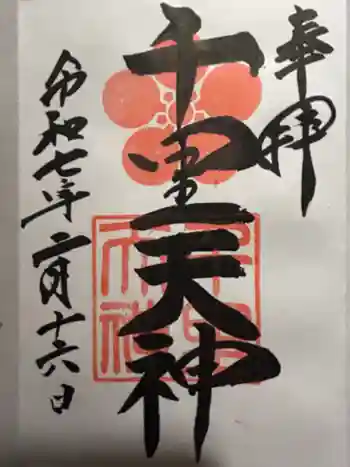 奉拝
千里天神
令和七年二月十六日